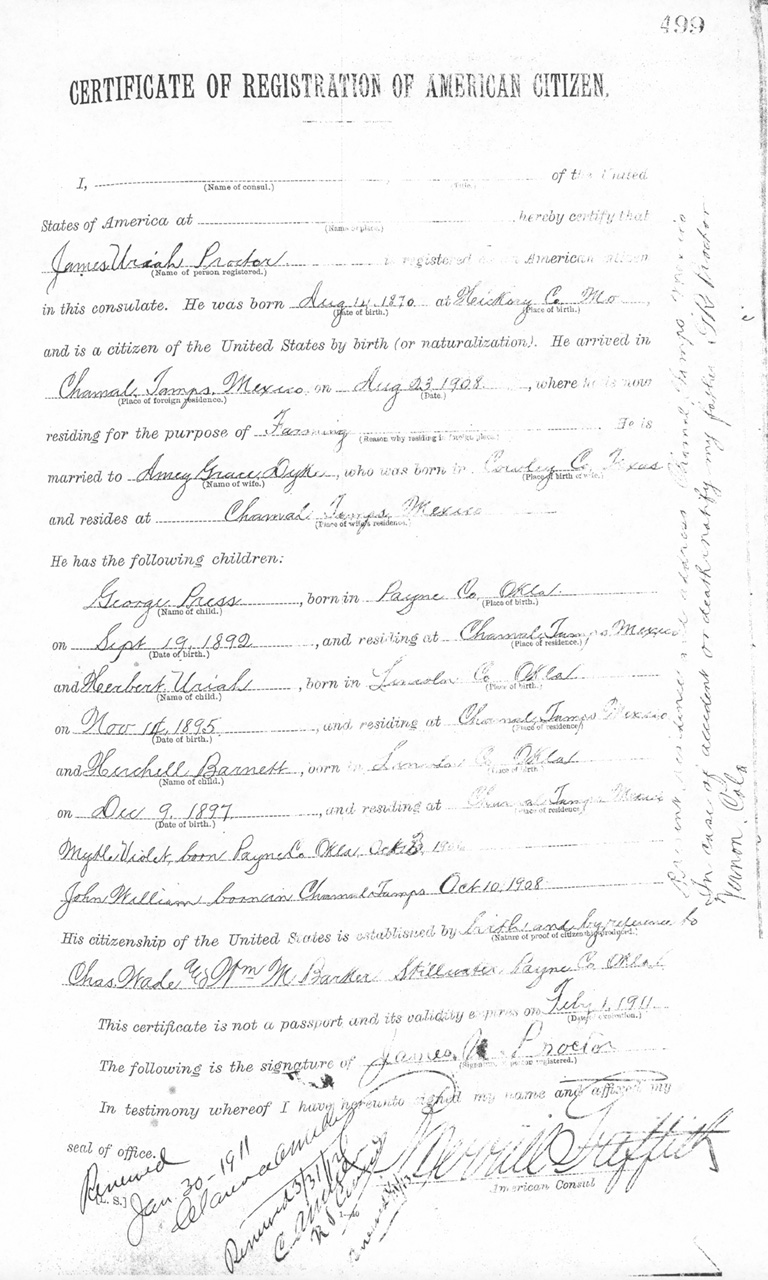 499
CERTIFICATE OF REGISTRATION OF AMERICAN CITIZEN.
I, of the United
(Name of consul.) (Title.)
States of America at hereby certify that
(Name of place.)
James Uriah Proctor is registered as an American citizen
(Name of person registered.)
in this consulate. He was born Aug 14, 1870 at Hickory Co Mo,
(Date of birth.) (Place of birth.)
and is a citizen of the United States by birth (or naturalization). He arrived in
Chamal, Tamps, Mexico, on Aug 23 1908, where he is now
(Place of foreign residence.) (Date.)
residing for the purpose of Farming. He is
(Reason why residing in foreign place.)
married to Amey Grace Dyke, who was born in Cowley Co, Texas
(Name of wife.) (Place of birth of wife.)
and resides at Chamal Tamps Mexico
(Place of wife's residence.)
He has the following children:
George Press, born in Payne Co Okla
(Name of child.) (Place of birth.)
on Sept 19, 1892, and residing at Chamal, Tamps Mexico
(Date of birth.) (Place of residence.)
and Herbert Uriah, born in Lincoln Co Okla
(Name of child.) (Place of birth.)
on Nov 14, 1895, and residing at Chamal Tamps Mexico
(Date of birth.) (Place of residence.)
and Herchell Barnett, born in Lincoln Co Okla
(Name of child.) (Place of birth.)
on Dec 9, 1897, and residing at Chamal Tamps Mexico
(Date of birth.) (Place of residence.)
Myrtle Violet, born Payne Co. Okla Oct
John William born in Chamal Tamps Oct 10, 1908
His citizenship of the United States is established by birth and by reference to
(Nature of proof of citizenship produced.)
Chas. Wade & Wm M Barker Stillwater Payne Co Okla
This certificate is not a passport and its validity expires on Feb 1, 1911
(Date of expiration.)
The following is the signature of James U. Proctor
(Signature of person registered.)
In testimony whereof I have hereunto signed my name and affixed my
seal of office.
[L. S.]
Merrill Griffith
American Consul
Renewed
Jan. 30-1911
Clarence
Renewed 3/31/12
Present residence and address Chamal Tamps Mexico
In case of accident or death notify my father Proctor
Vernon, Colo